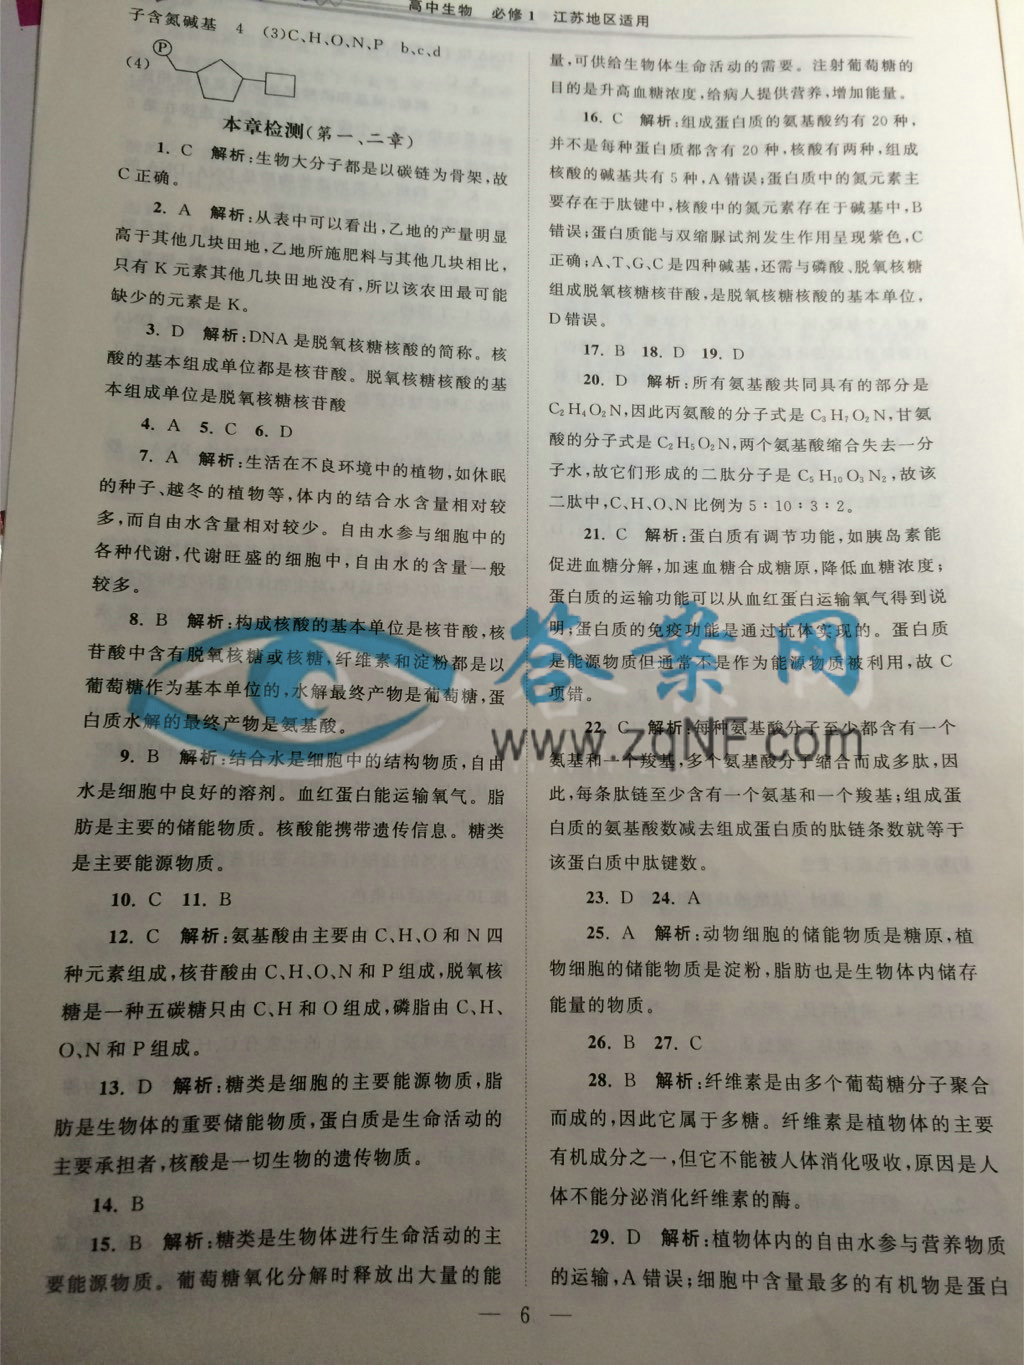 高中生物　必修1　江苏地区适用
子含氮碱基　4　(3)C、H、O、N、P　b、c、d
(4)
P
本章检测(第一、二章)
1. C　解析:生物大分子都是以碳链为骨架,故
C正确。
2. A　解析:从表中可以看出,乙地的产量明显
高于其他几块田地,乙地所施肥料与其他几块相比,
只有K元素其他几块田地没有,所以该农田最可能
缺少的元素是K。
3. D　解析:DNA是脱氧核糖核酸的简称。核
酸的基本组成单位都是核苷酸。脱氧核糖核酸的基
本组成单位是脱氧核糖核苷酸
4. A　5. C　6. D
7. A　解析:生活在不良环境中的植物,如休眠
的种子、越冬的植物等,体内的结合水含量相对较
多,而自由水含量相对较少。自由水参与细胞中的
各种代谢,代谢旺盛的细胞中,自由水的含量一般
较多。
8. B　解析:构成核酸的基本单位是核苷酸,核
苷酸中含有脱氧核糖或核糖,纤维素和淀粉都是以
葡萄糖作为基本单位的,水解最终产物是葡萄糖,蛋
白质水解的最终产物是氨基酸。
9. B　解析:结合水是细胞中的结构物质,自由
水是细胞中良好的溶剂。血红蛋白能运输氧气。脂
肪是主要的储能物质。核酸能携带遗传信息。糖类
是主要能源物质。
10. C　11. B
12. C　解析:氨基酸由主要由C、H、O和N四
种元素组成,核苷酸由C、H、O、N和P组成,脱氧核
糖是一种五碳糖只由C、H和O组成,磷脂由C、H、
O、N和P组成。
13. D　解析:糖类是细胞的主要能源物质,脂
肪是生物体的重要储能物质,蛋白质是生命活动的
主要承担者,核酸是一切生物的遗传物质。
14. B
15. B　解析:糖类是生物体进行生命活动的主
要能源物质。葡萄糖氧化分解时释放出大量的能
量,可供给生物体生命活动的需要。注射葡萄糖的
目的是升高血糖浓度,给病人提供营养,增加能量。
16. C　解析:组成蛋白质的氨基酸约有20种,
并不是每种蛋白质都含有20种,核酸有两种,组成
核酸的碱基共有5种,A错误;蛋白质中的氮元素主
要存在于肽键中,核酸中的氮元素存在于碱基中,B
错误;蛋白质能与双缩脲试剂发生作用呈现紫色,C
正确;A、T、G、C是四种碱基,还需与磷酸、脱氧核糖
组成脱氧核糖核苷酸,是脱氧核糖核酸的基本单位,
D错误。
17. B　18. D　19. D
20. D　解析:所有氨基酸共同具有的部分是
C₂H₄O₂N,因此丙氨酸的分子式是C₃H₇O₂N,甘氨
酸的分子式是C₂H₅O₂N,两个氨基酸缩合失去一分
子水,故它们形成的二肽分子是C₅H₁₀O₃N₂,故该
二肽中,C、H、O、N比例为5∶10∶3∶2。
21. C　解析:蛋白质有调节功能,如胰岛素能
促进血糖分解,加速血糖合成糖原,降低血糖浓度;
蛋白质的运输功能可以从血红蛋白运输氧气得到说
明;蛋白质的免疫功能是通过抗体实现的。蛋白质
是能源物质但通常不是作为能源物质被利用,故C
项错。
22. C　解析:每种氨基酸分子至少都含有一个
氨基和一个羧基,多个氨基酸分子缩合而成多肽,因
此,每条肽链至少含有一个氨基和一个羧基;组成蛋
白质的氨基酸数减去组成蛋白质的肽链条数就等于
该蛋白质中肽键数。
23. D　24. A
25. A　解析:动物细胞的储能物质是糖原,植
物细胞的储能物质是淀粉,脂肪也是生物体内储存
能量的物质。
26. B　27. C
28. B　解析:纤维素是由多个葡萄糖分子聚合
而成的,因此它属于多糖。纤维素是植物体的主要
有机成分之一,但它不能被人体消化吸收,原因是人
体不能分泌消化纤维素的酶。
29. D　解析:植物体内的自由水参与营养物质
的运输,A错误;细胞中含量最多的有机物是蛋白
— 6 —
答案网
www.zqNF.com